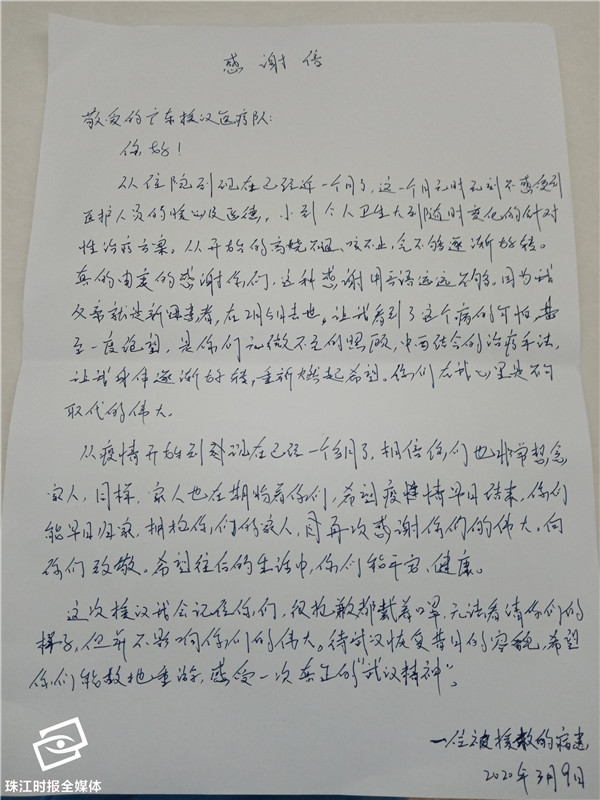 感谢信
敬爱的广东援汉医疗队：
你好！
从住院到现在已经近一个月了，这一个月无时无刻不感受到
医护人员的 医德，小到个人卫生大到随时变化的针对
性治疗方案。从开始的高烧不退、咳不止，无不能够逐渐好转。
真的由衷的感谢你们，这种感谢用言语远远不够。因为我
父亲就是新冠患者，在2月5日去世。让我看到了这个病的可怕，甚
至一度绝望，是你们无微不至的照顾，中西结合的治疗手法，
让我身体逐渐好转，重新燃起希望。你们在我心里是不可
取代的伟大。
从疫情开始到现在已经一个多月了，相信你们也非常想念
家人，同样，家人也在期盼着你们，希望疫情早日结束，你们
能早日归家，拥抱你们的家人，再次感谢你们的伟大，向
你们致敬。希望往后的生活中，你们能平安、健康。
这次援汉我会记住你们，很抱歉都戴着口罩，无法看清你们的
样子，但并不影响你们的伟大。待武汉恢复昔日的容貌，希望
你们能故地重游，感受一次真正的“武汉精神”。
一位被援救的病患
2020年3月9日
珠江时报全媒体